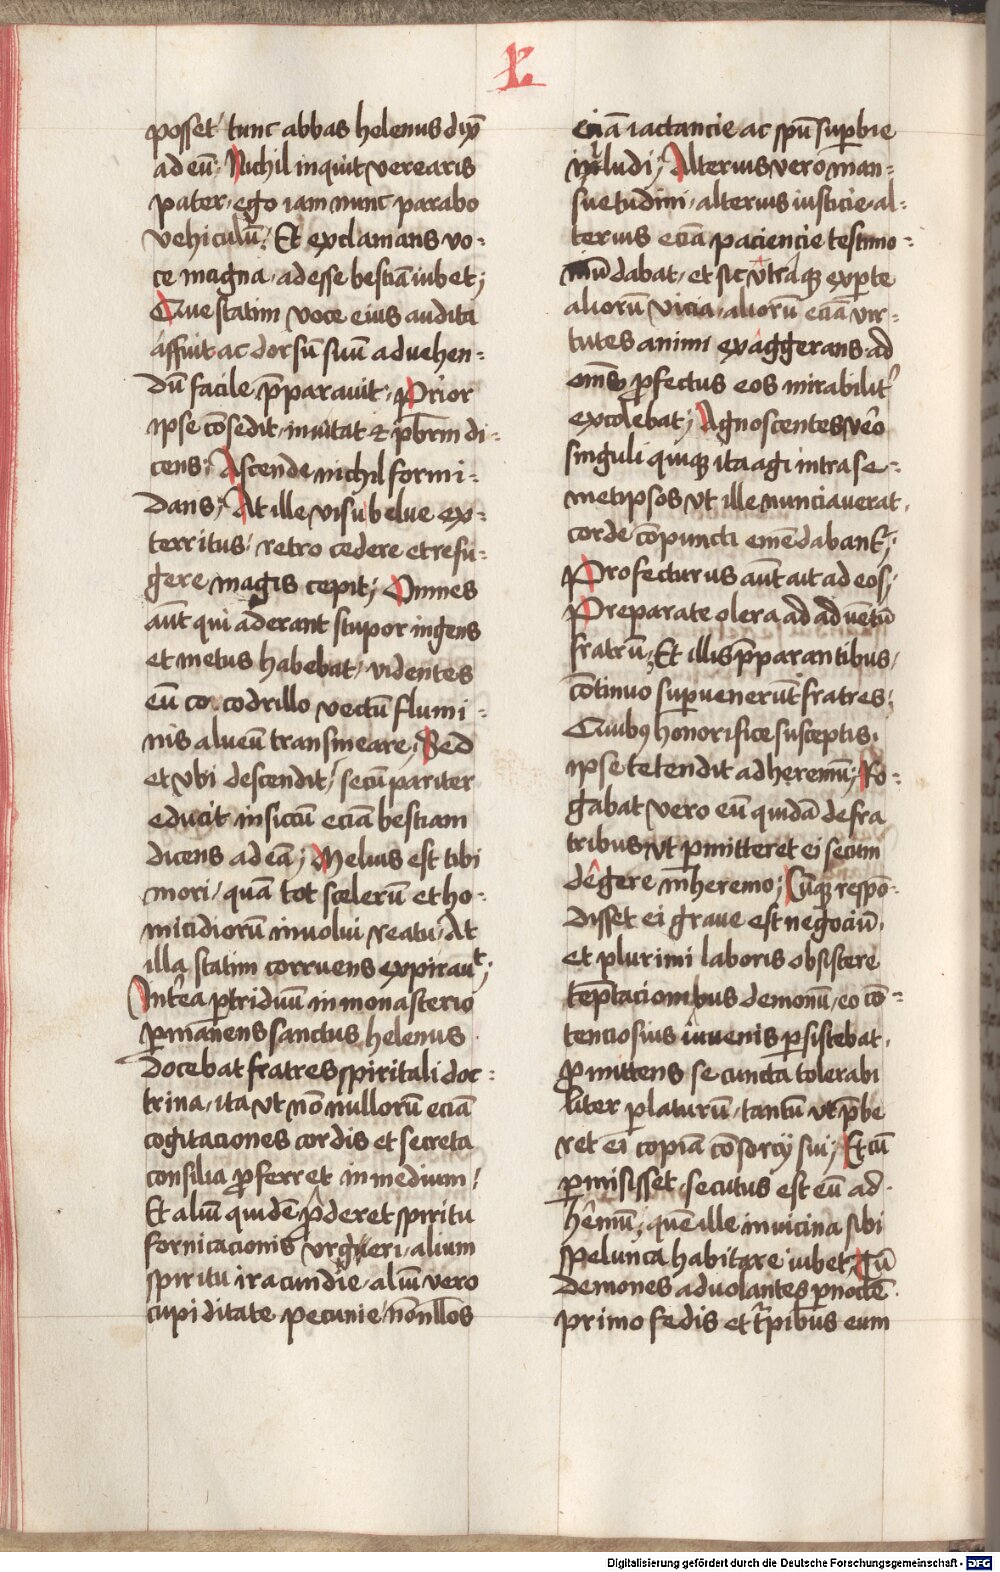 posset / tunc abbas helenus dix̄
ad eū: Nichil inquit verearis
pater, ego iam nunc parabo
vehiculū: Et exclamans vo:
ce magna, adesse bestiā iubet;
Que statim voce eius audita
affuit ac dorsū suū ad vehen:
dū facile p̄parauit: Prior
ipse cōsedit, inuitat & p̄brm di:
cens: Ascende nichil formi:
dans; At ille visu belue ex:
territus: retro cedere et refu:
gere magis cepit; Omnes
aūt qui aderant stupor ingens
et metus habebat, videntes
eū co codrillo vectū flumi:
nis alueū transmeare; Sed
et vbi descendit, secū pariter
educit in siccū eciā bestiam
dicens ad eā; Melius est tibi
mori, quā tot scelerū et ho:
micidiorū inuolui reatu, At
illa statim corruens expirauᵗ;
Int̄ea p triduū in monasterio
ꝑmanens sanctus helenus
docebat fratres spiritali doc:
trina, ita vt nō nullorū eciā
cogitaciones cordis et secreta
consilia ꝓferret in medium,
Et aliū quidē ꝓderet spiritu
fornicacionis vrgueri, alium
spiritu iracundie, aliū vero
cupiditate pecunie, nōnllōs
eciā iactancie ac spū suꝑbie
illudi; Alterius vero man:
suetudini, alterius iusticie, al:
terius eciā paciencie testimo:
niū dabat, et sic vtrāqꝫ ex ꝑte
aliorū vicia, aliorū eciā vir:
tutes animi exaggerans, ad
om̄s ꝓfectus eos mirabilit̄
excolebat; Agnoscentes vēo
singuli quiqꝫ ita agi intra se:
metipsos vt ille nunciauerat,
corde cōpuncti emēdabant̄;
Profecturus aūt ait ad eos;
Preparate olera ad aduētū
fratrū; Et illis p̄parantibus,
cōtinuo suꝑuenerūt fratres;
Quibꝰ honorifice susceptis,
ipse tetendit ad heremū; Ro:
gabat vero eū quidā de fra
tribus vt ꝑmitteret ei secum
degere in heremo; Cūqꝫ respō:
disset ei graue est negociū,
et plurimi laboris obsistere
tēptacionibus demonū, eo cō:
tenciosius iuuenis ꝑsistebat,
ꝓmittens se cuncta tolerabi
liter ꝑlaturū, tantū vt p̄be
ret ei copiā cōsorcij sui; Et cū
ꝑmisisset, secutus est eū ad
hēmū, quē ille in vicina sibi
spelunca habitare iubet; Tū
demones aduolantes ꝑ noctē
primo fedis et t̄pibus eum
Digitalisierung gefördert durch die Deutsche Forschungsgemeinschaft - DFG